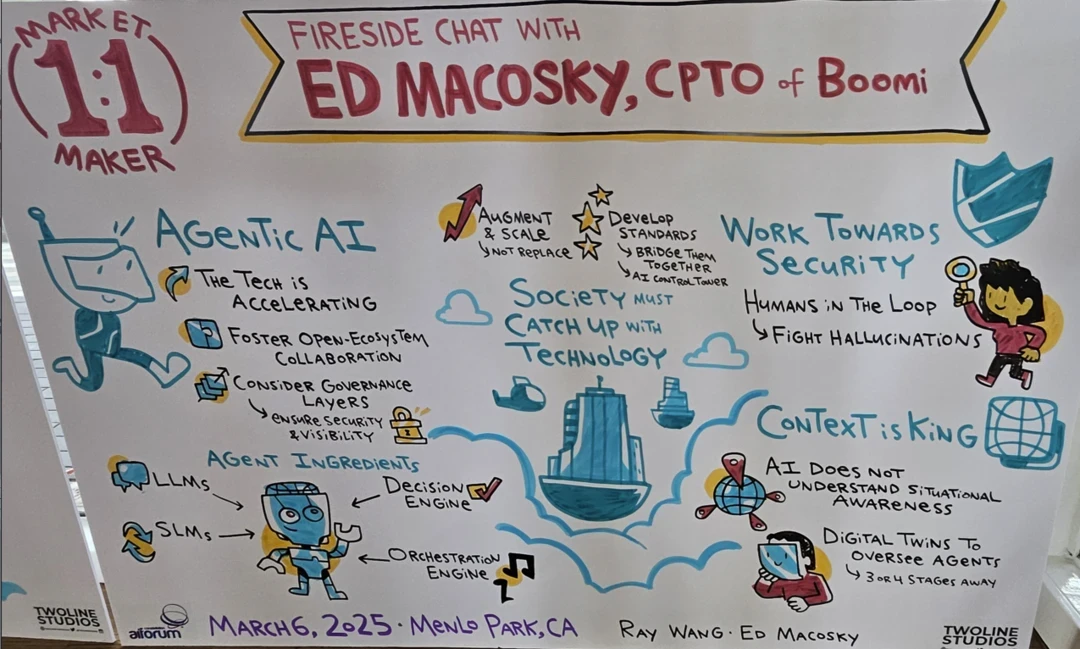 MARKET
1:1
MAKER
FIRESIDE CHAT WITH
ED MACOSKY, CPTO of BOOMi
AGENTIC AI
THE TECH IS
ACCELERATING
FOSTER OPEN-ECOSYSTEM
COLLABORATION
CONSIDER GOVERNANCE
LAYERS
ENSURE SECURITY
& VISIBILITY
AGENT INGREDIENTS
LLMs
SLMs
DECISION
ENGINE
ORCHESTRATION
ENGINE
AUGMENT
& SCALE
NOT REPLACE
DEVELOP
STANDARDS
BRIDGE THEM
TOGETHER
AI CONTROL TOWER
SOCIETY MUST
CATCH UP WITH
TECHNOLOGY
WORK TOWARDS
SECURITY
HUMANS IN THE LOOP
FIGHT HALLUCINATIONS
CONTEXT IS KING
AI DOES NOT
UNDERSTAND SITUATIONAL
AWARENESS
DIGITAL TWINS TO
OVERSEE AGENTS
3 OR 4 STAGES AWAY
TWOLINE
STUDIOS
aiforum
MARCH 6, 2025 · MENLO PARK, CA
RAY WANG · ED MACOSKY
TWOLINE
STUDIOS